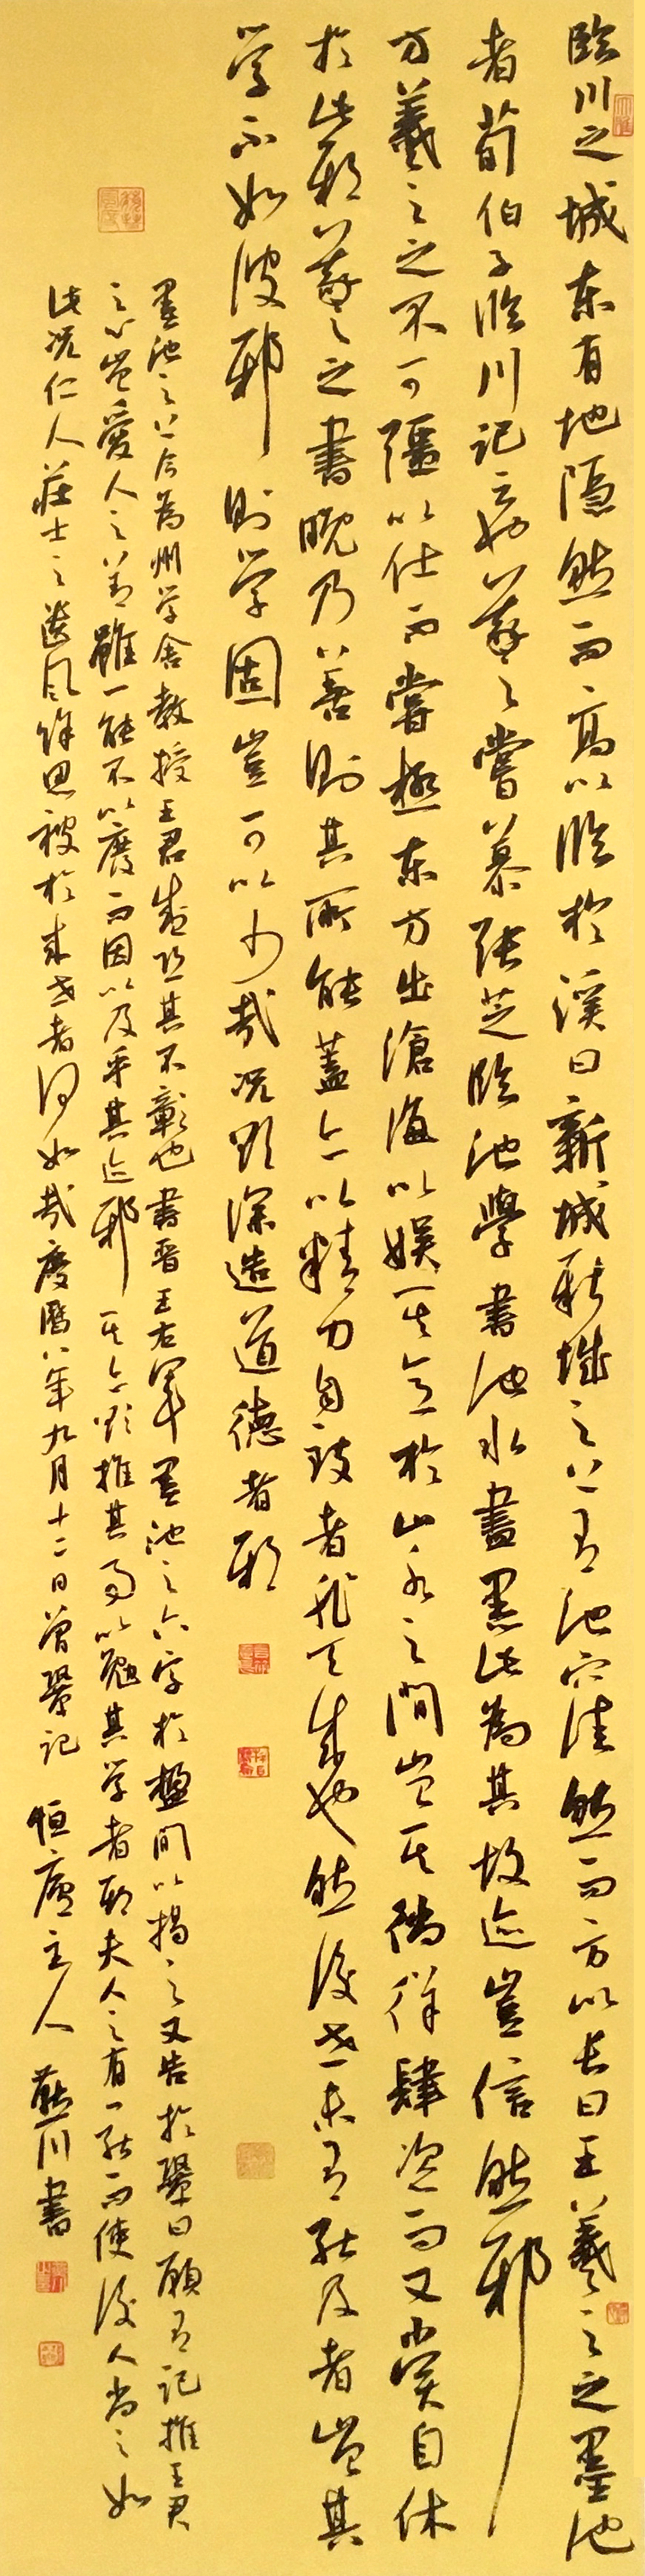 臨川之城東有地隱然而高以臨於溪曰新城新城之上有池穴洼然而方以長曰王羲之之墨池
者荀伯子臨川記云也羲之嘗慕張芝臨池學書池水盡黑此為其故迹豈信然邪
方羲之之不可彊以仕而嘗極東方出滄海以娛其意於山水之間豈其徜徉肆恣而又嘗自休
於此邪羲之之書晚乃善則其所能蓋亦以精力自致者非天成也然後世未有能及者豈其
学不如彼邪則学固豈可以少哉況欲深造道德者邪
墨池之上今為州学舍教授王君盛恐其不彰也書晉王右軍墨池之六字於楹間以揭之又告於鞏曰願有記推王君
之心豈愛人之善雖一能不以廢而因以及乎其迹邪其亦欲推其事以勉其学者邪夫人之有一能而使後人尚之如
此況仁人莊士之遺風餘思被於來世者何如哉慶曆八年九月十二日曾鞏記 恒廬主人 川書